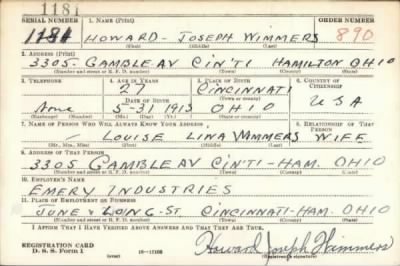 1181
SERIAL NUMBER 1. NAME (Print) ORDER NUMBER
1181 HOWARD - JOSEPH WIMMERS 890
(First) (Middle) (Last)
2. ADDRESS (Print)
3305- GAMBLE AV CIN'TI HAMILTON OHIO
(Number and street or R. F. D. number) (Town) (County) (State)
3. TELEPHONE 4. AGE IN YEARS 5. PLACE OF BIRTH 6. COUNTRY OF CITIZENSHIP
27 CINCINNATI
None DATE OF BIRTH (Town or county) U S A
5-31 1913 OHIO
(Exchange) (Number) (Mo.) (Day) (Yr.) (State or country)
7. NAME OF PERSON WHO WILL ALWAYS KNOW YOUR ADDRESS 8. RELATIONSHIP OF THAT PERSON
LOUISE LINA WIMMERS WIFE
(Mr., Mrs., Miss) (First) (Middle) (Last)
9. ADDRESS OF THAT PERSON
3305 GAMBLE AV CIN'TI-HAM. OHIO
(Number and street or R. F. D. number) (Town) (County) (State)
10. EMPLOYER'S NAME
EMERY INDUSTRIES
11. PLACE OF EMPLOYMENT OR BUSINESS
JUNE & LONG-ST CINCINNATI-HAM. OHIO
(Number and street or R. F. D. number) (Town) (County) (State)
I AFFIRM THAT I HAVE VERIFIED ABOVE ANSWERS AND THAT THEY ARE TRUE.
REGISTRATION CARD
D. S. S. Form 1 (over) Howard Joseph Wimmers
(Registrant's signature)